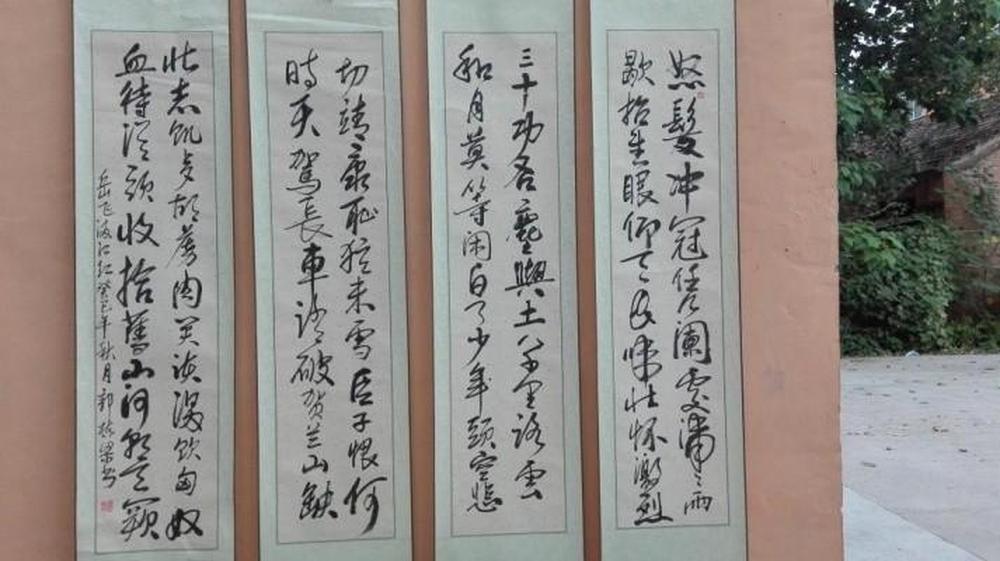 怒髮冲冠凭阑處潇々雨
歇抬望眼仰天长啸壮怀激烈
三十功名塵與土八千里路雲
和月莫等闲白了少年頭空悲
切靖康恥犹未雪臣子恨何
時灭駕長車踏破贺兰山缺
壮志飢餐胡虏肉笑谈渴饮匈奴
血待從頭收拾舊山河朝天闕
岳飞满江红癸巳年秋月郭梁书